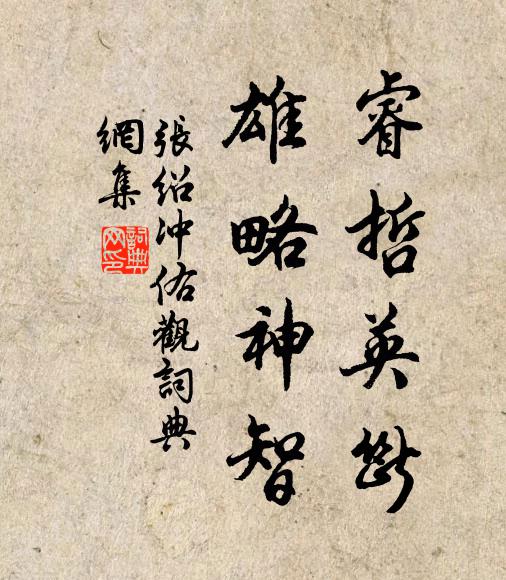 睿哲英断
雄略神智
張紹冲佑觀詞典
網集
詞典
网印